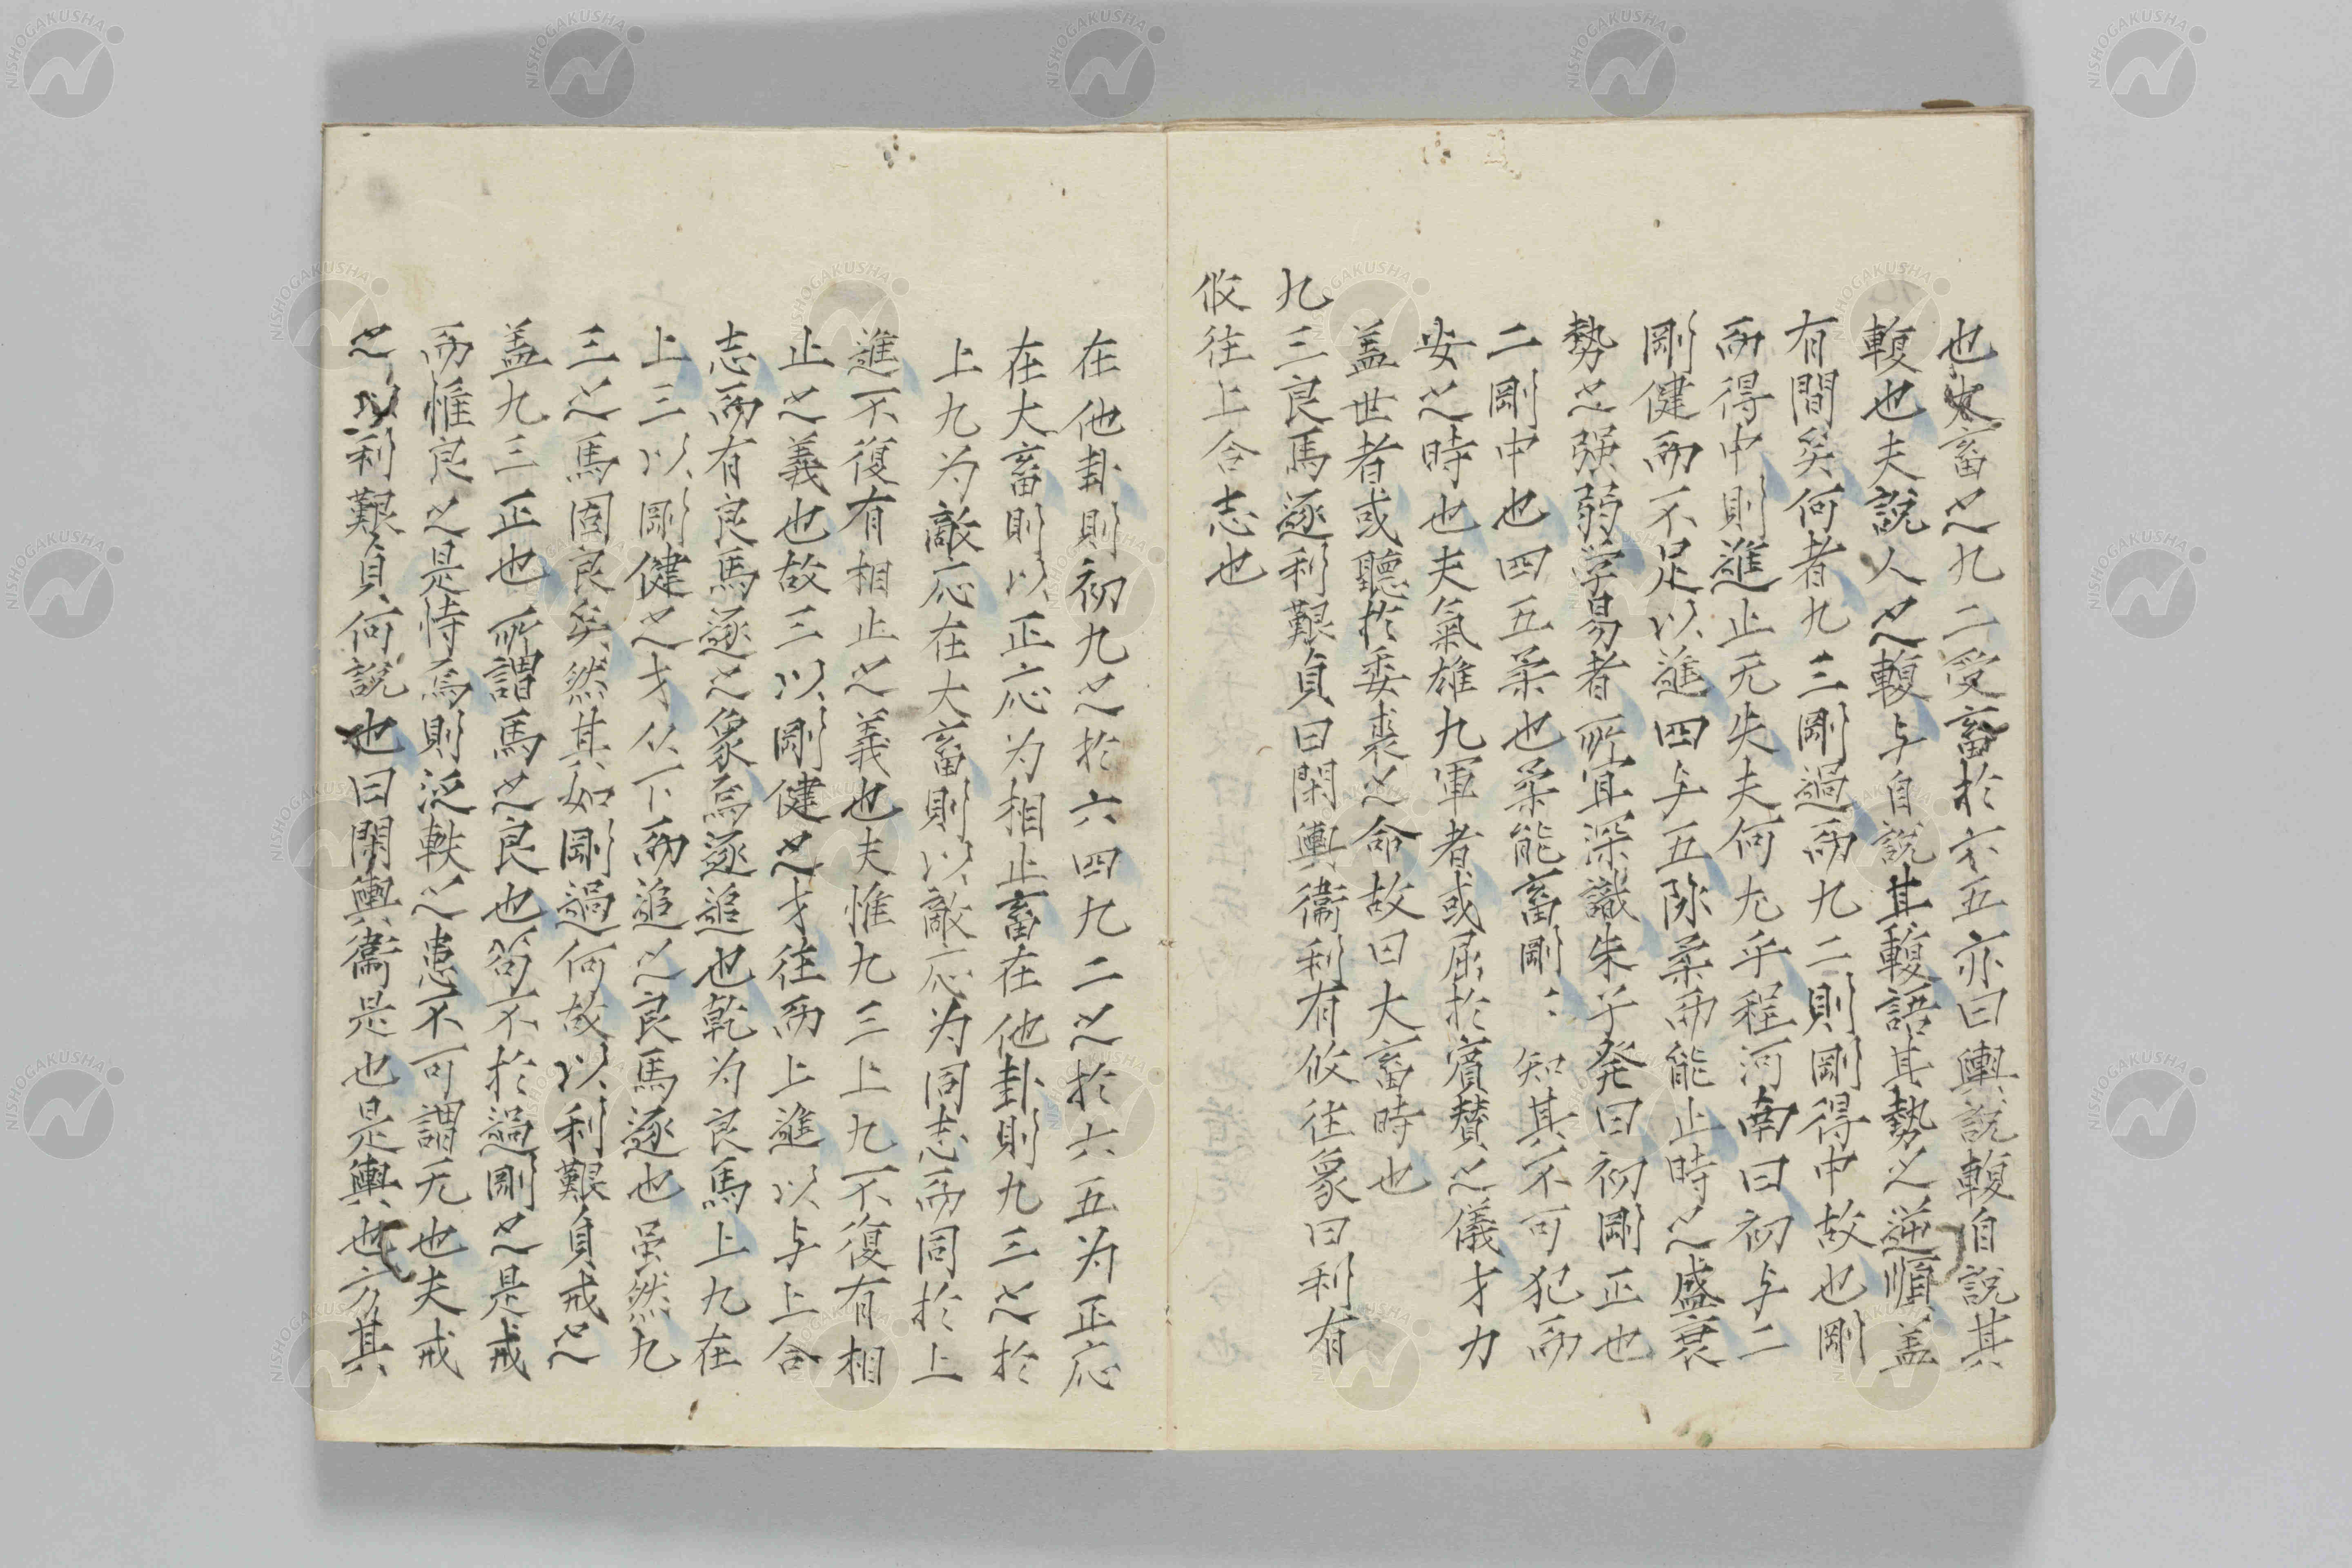 也大畜之九二受畜於六五亦曰輿說輹自說其
輹也夫說人之輹与自說其輹語其勢之逆順盖
有間矣何者九三剛過而九二則剛得中故也剛
而得中則進止无失夫何尢乎程河南曰初与二
剛健而不足以進四与五陰柔而能止時之盛衰
勢之强弱学易者所宜深識朱子発曰初剛正也
二剛中也四五柔也柔能畜剛〻知其不可犯而
安之時也夫氣雄九軍者或屈於賓贊之儀才力
盖世者或聽於委裘之命故曰大畜時也
九三良馬逐利艱貞曰閑輿衞利有攸往象曰利有
攸往上合志也
在他卦則初九之於六四九二之於六五为正応
在大畜則以正応为相止畜在他卦則九三之於
上九为敵応在大畜則以敵応为同志而同於上
進不復有相止之義也夫惟九三上九不復有相
止之義也故三以剛健之才往而上進以与上合
志而有良馬逐之象焉逐追也乾为良馬上九在
上三以剛健之才从下而追之良馬逐也虽然九
三之馬固良矣然其如剛過何故以利艱貞戒之
盖九三正也所謂馬之良也苟不於過剛之是戒
而惟良之是恃焉則泛軼之患不可謂无也夫戒
之以利艱貞何說也曰閑輿衞是也是輿也方其